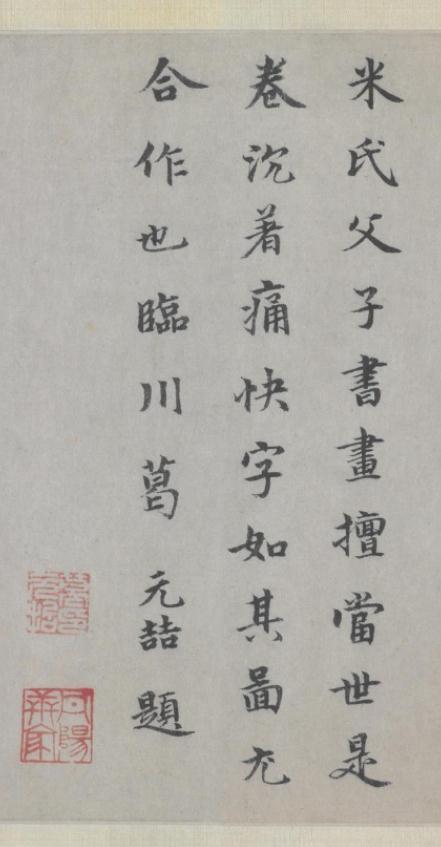 米氏父子書畫擅當世是
卷沉著痛快字如其啚尤
合作也臨川葛元喆題